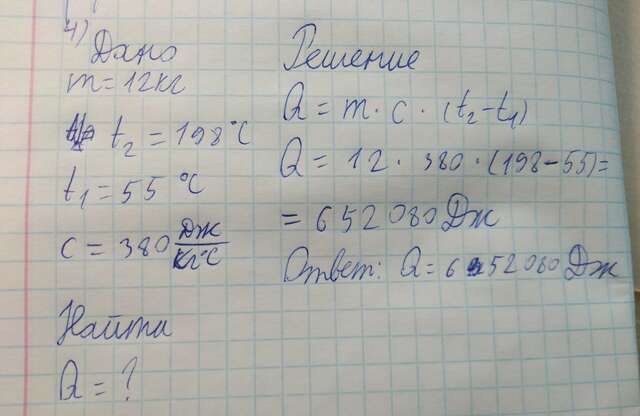 4)
Дано
m = 12кг
t₂ = 198°C
t₁ = 55 °C
c = 380 Дж/кг°C
Найти
Q = ?
Решение
Q = m · c · (t₂-t₁)
Q = 12 · 380 · (198-55)=
= 652 080 Дж
Ответ: Q = 652 080 Дж